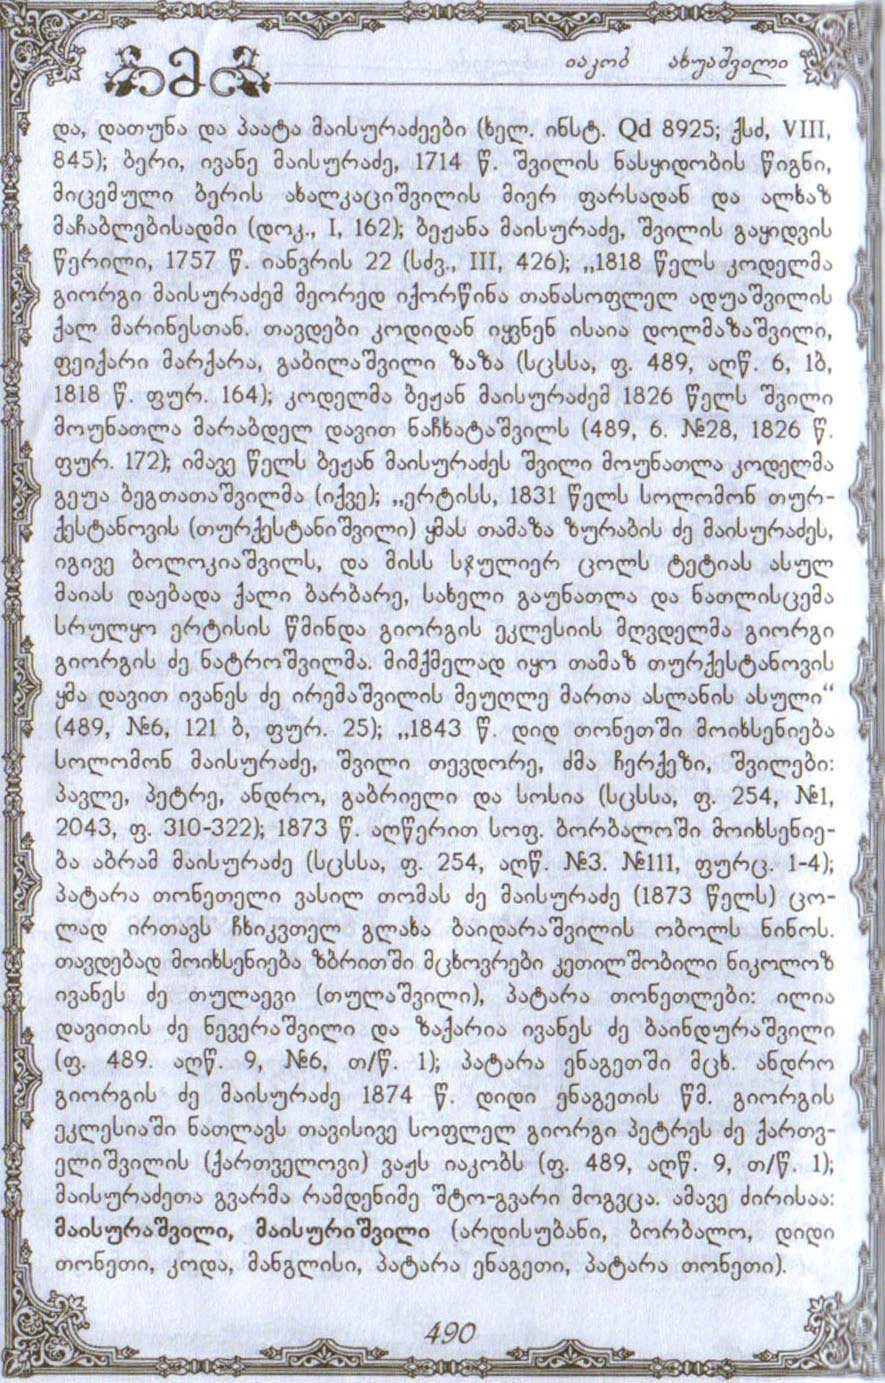 მ
იაკობ ახუაშვილი
და, დათუნა და პაატა მაისურაძეები (ხელ. ინსტ. Qd 8925; ქსძ, VIII,
845); ბერი, ივანე მაისურაძე, 1714 წ. შვილის ნასყიდობის წიგნი,
მიცემული ბერის ახალკაციშვილის მიერ ფარსადან და ალხაზ
მაჩაბლებისადმი (დოკ., I, 162); ბეჟანა მაისურაძე, შვილის გაყიდვის
წერილი, 1757 წ. იანვრის 22 (სძვ., III, 426); „1818 წელს კოდელმა
გიორგი მაისურაძემ მეორედ იქორწინა თანასოფლელ ადუაშვილის
ქალ მარინესთან. თავდები კოდიდან იყვნენ ისაია დოლმაზაშვილი,
ფეიქარი მარქარა, გაბილაშვილი ზაზა (სცსსა, ფ. 489, აღწ. 6, 1ბ,
1818 წ. ფურ. 164); კოდელმა ბეჟან მაისურაძემ 1826 წელს შვილი
მოუნათლა მარაბდელ დავით ნაჩხატაშვილს (489, 6. №28, 1826 წ.
ფურ. 172); იმავე წელს ბეჟან მაისურაძეს შვილი მოუნათლა კოდელმა
გეუა ბეგთათაშვილმა (იქვე); „ერტისს, 1831 წელს სოლომონ თურ-
ქესტანოვის (თურქესტანიშვილი) ყმას თამაზა ზურაბის ძე მაისურაძეს,
იგივე ბოლოკიაშვილს, და მისს სჯულიერ ცოლს ტეტიას ასულ
მაიას დაებადა ქალი ბარბარე, სახელი გაუნათლა და ნათლისცემა
სრულყო ერტისის წმინდა გიორგის ეკლესიის მღვდელმა გიორგი
გიორგის ძე ნატროშვილმა. მიმქმელად იყო თამაზ თურქესტანოვის
ყმა დავით ივანეს ძე ირემაშვილის მეუღლე მართა ასლანის ასული“
(489, №6, 121 ბ, ფურ. 25); „1843 წ. დიდ თონეთში მოიხსენიება
სოლომონ მაისურაძე, შვილი თევდორე, ძმა ჩერქეზი, შვილები:
პავლე, პეტრე, ანდრო, გაბრიელი და სოსია (სცსსა, ფ. 254, №1,
2043, ფ. 310-322); 1873 წ. აღწერით სოფ. ბორბალოში მოიხსენიე-
ბა აბრამ მაისურაძე (სცსსა, ფ. 254, აღწ. №3. №111, ფურც. 1-4);
პატარა თონეთელი ვასილ თომას ძე მაისურაძე (1873 წელს) ცო-
ლად ირთავს ჩხიკვთელ გლახა ბაიდარაშვილის ობოლს ნინოს.
თავდებად მოიხსენიება ზბრითში მცხოვრები კეთილშობილი ნიკოლოზ
ივანეს ძე თულაევი (თულაშვილი), პატარა თონეთლები: ილია
დავითის ძე ნევერაშვილი და ზაქარია ივანეს ძე ბაინდურაშვილი
(ფ. 489. აღწ. 9, №6, თ/წ. 1); პატარა ენაგეთში მცხ. ანდრო
გიორგის ძე მაისურაძე 1874 წ. დიდი ენაგეთის წმ. გიორგის
ეკლესიაში ნათლავს თავისივე სოფლელ გიორგი პეტრეს ძე ქართვ-
ელიშვილის (ქართველოვი) ვაჟს იაკობს (ფ. 489, აღწ. 9, თ/წ. 1);
მაისურაძეთა გვარმა რამდენიმე შტო-გვარი მოგვცა. ამავე ძირისაა:
მაისურაშვილი, მაისურიშვილი (არდისუბანი, ბორბალო, დიდი
თონეთი, კოდა, მანგლისი, პატარა ენაგეთი, პატარა თონეთი).
490